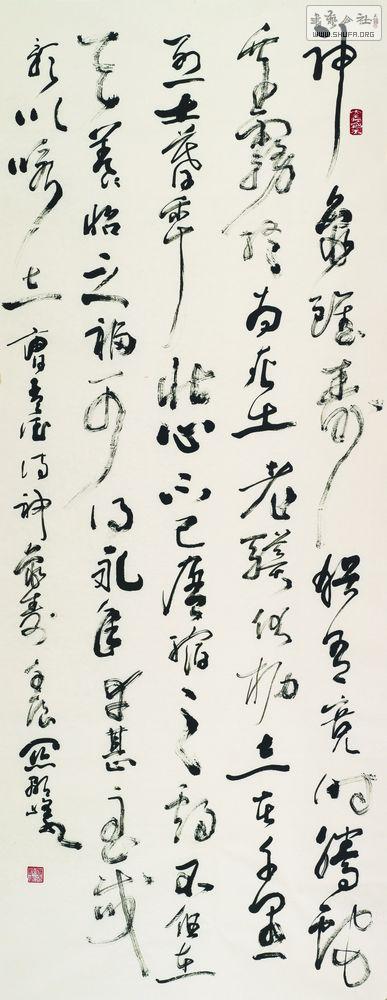 WWW.SHUFA.ORG
神龜雖壽猶有竟時騰蛇
乘霧終為灰土老驥伏櫪志在千里
烈士暮年壯心不已盈縮之期不但在
天養怡之福可得永年幸甚至哉
歌以詠志曹孟德詩神龜壽